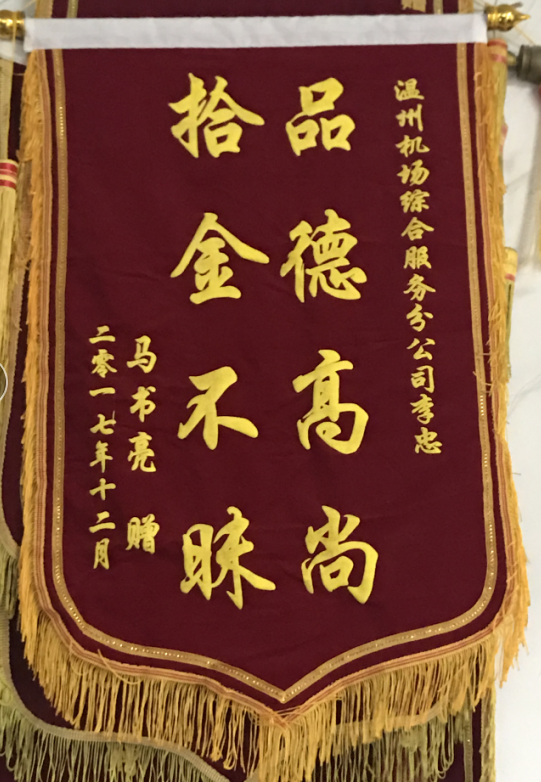 温州机场综合服务分公司李忠
品德高尚
拾金不昧
马书亮 赠
二零一七年十二月